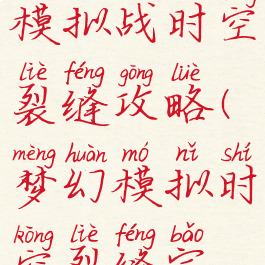 模拟战时空
liè féng gōng lüè
裂缝攻略(
mèng huàn mó nǐ shí
梦幻模拟时
kōng liè féng bǎo
空裂缝宝